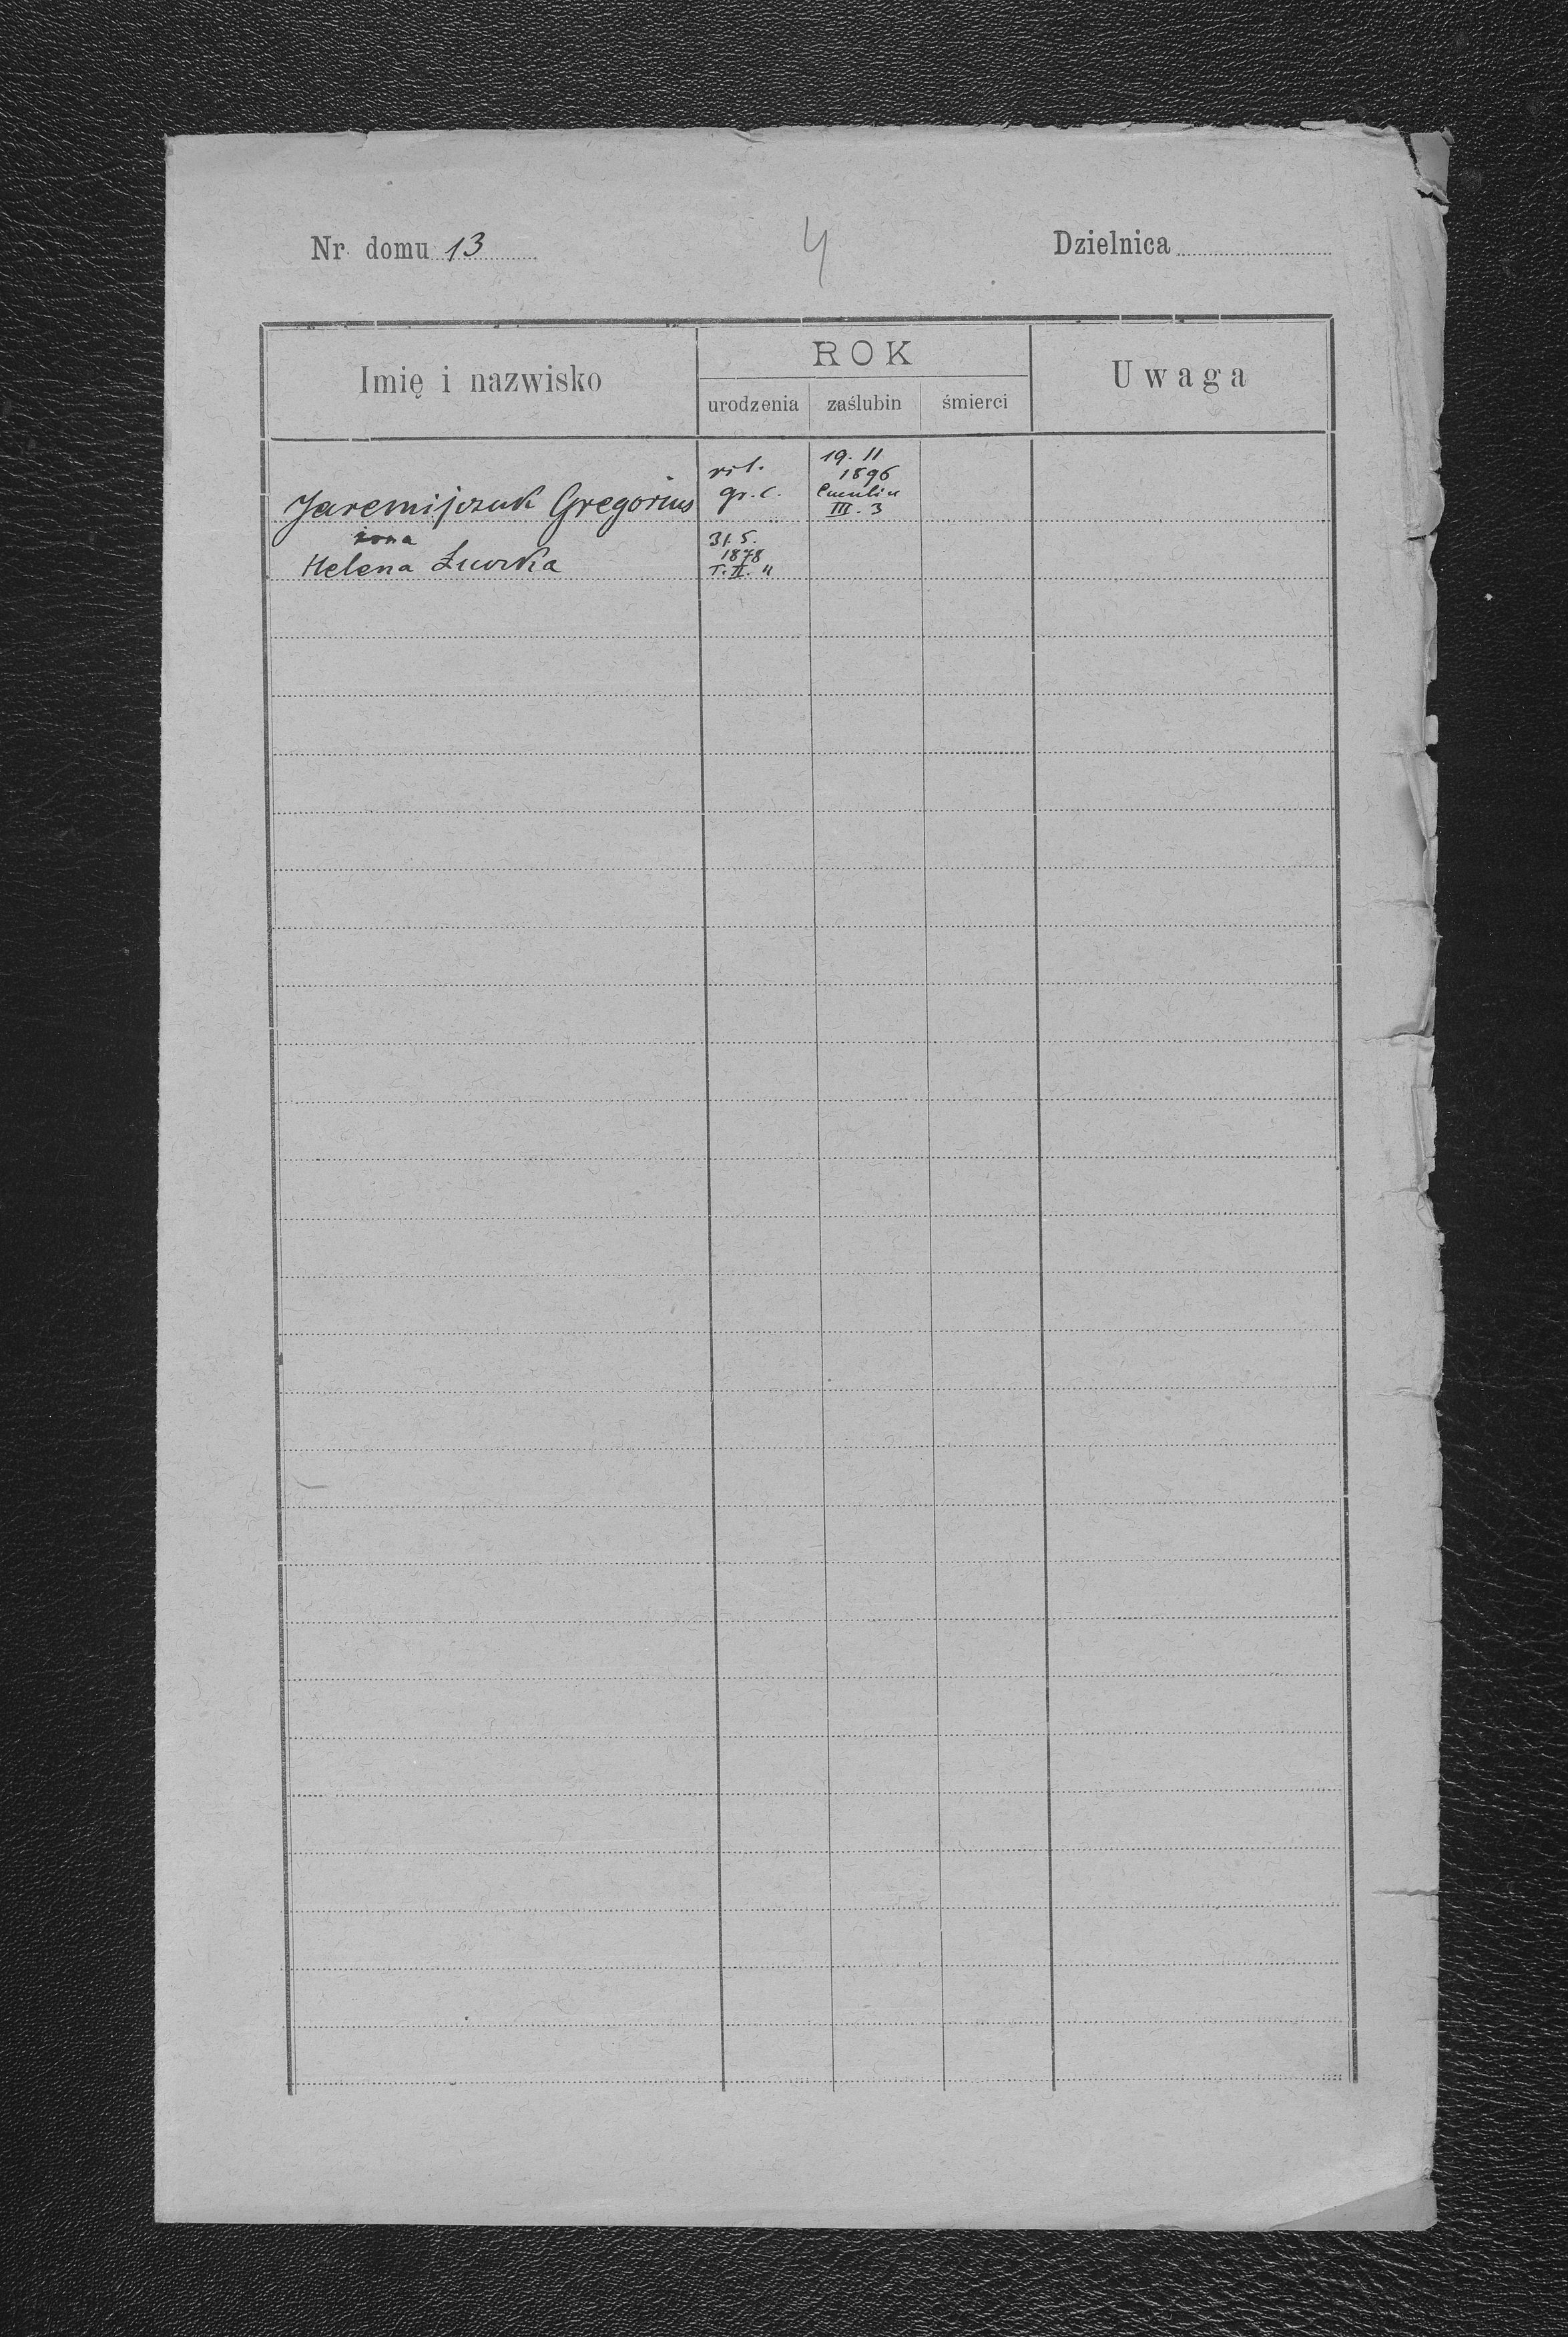 Nr. domu 13
4
Dzielnica
Imię i nazwisko
ROK
urodzenia zaślubin śmierci
Uwaga
Jaremijczuk Gregorius
rit.
gr. c.
19. II
1896
III. 3
żona
Helena
31. 5.
1878
T. II. 11